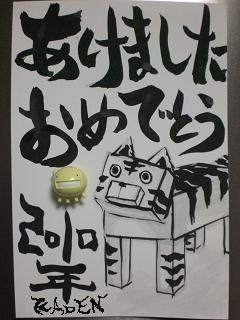 あけました
おめでとう
2010
年
KADEN